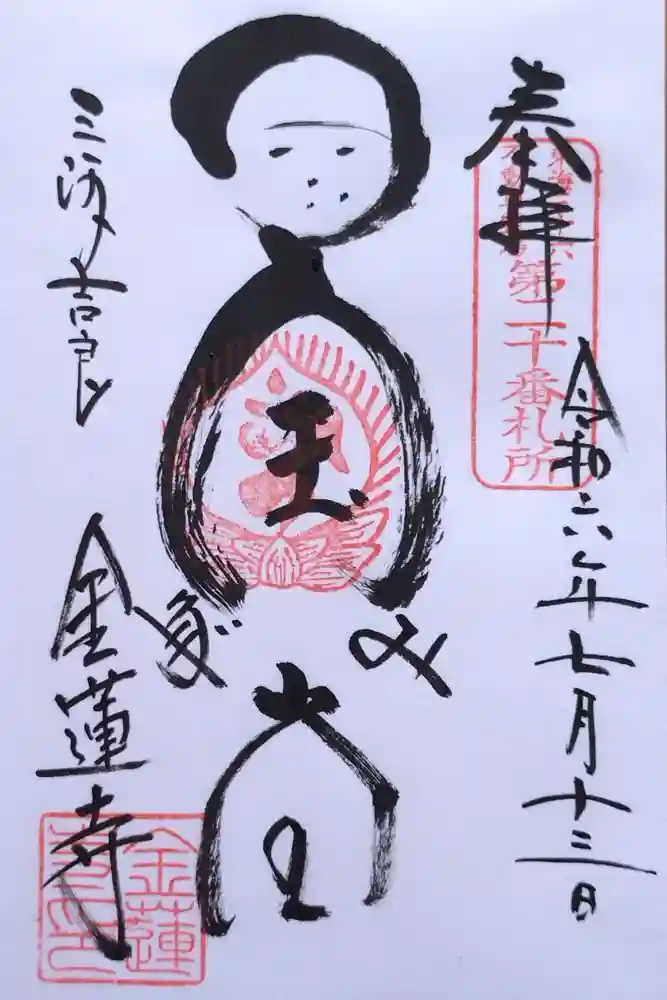 奉拝
令和六年七月十三日
第二十番札所
玉
み
堂
三河吉良
金蓮寺
金蓮